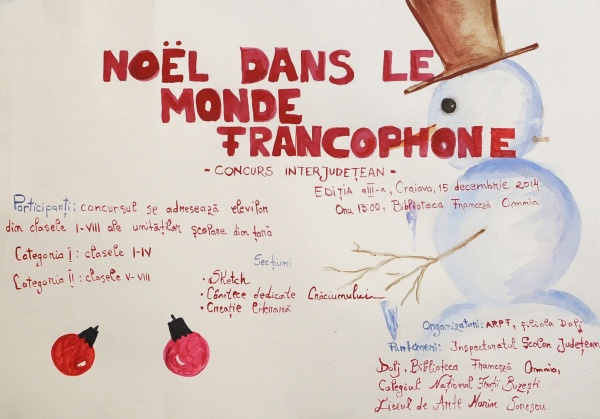 NOËL DANS LE
MONDE
FRANCOPHONE
- CONCURS INTERJUDEȚEAN -
EDIȚIA a III-a, Craiova, 15 decembrie 2014
Ora 13:00, Biblioteca Franceză Omnia
Participanți: concursul se adresează elevilor
din clasele I-VIII ale unităților școlare din țară
Categoria I: clasele I-IV
Categoria II: clasele V-VIII
Secțiuni
• Sketch
• Cântece dedicate Crăciunului
• Creație literară
Organizatori: ARPF, filiala Dolj
Parteneri: Inspectoratul Școlar Județean
Dolj, Biblioteca Franceză Omnia,
Colegiul Național Frații Buzești
Liceul de Arte Marin Sorescu.